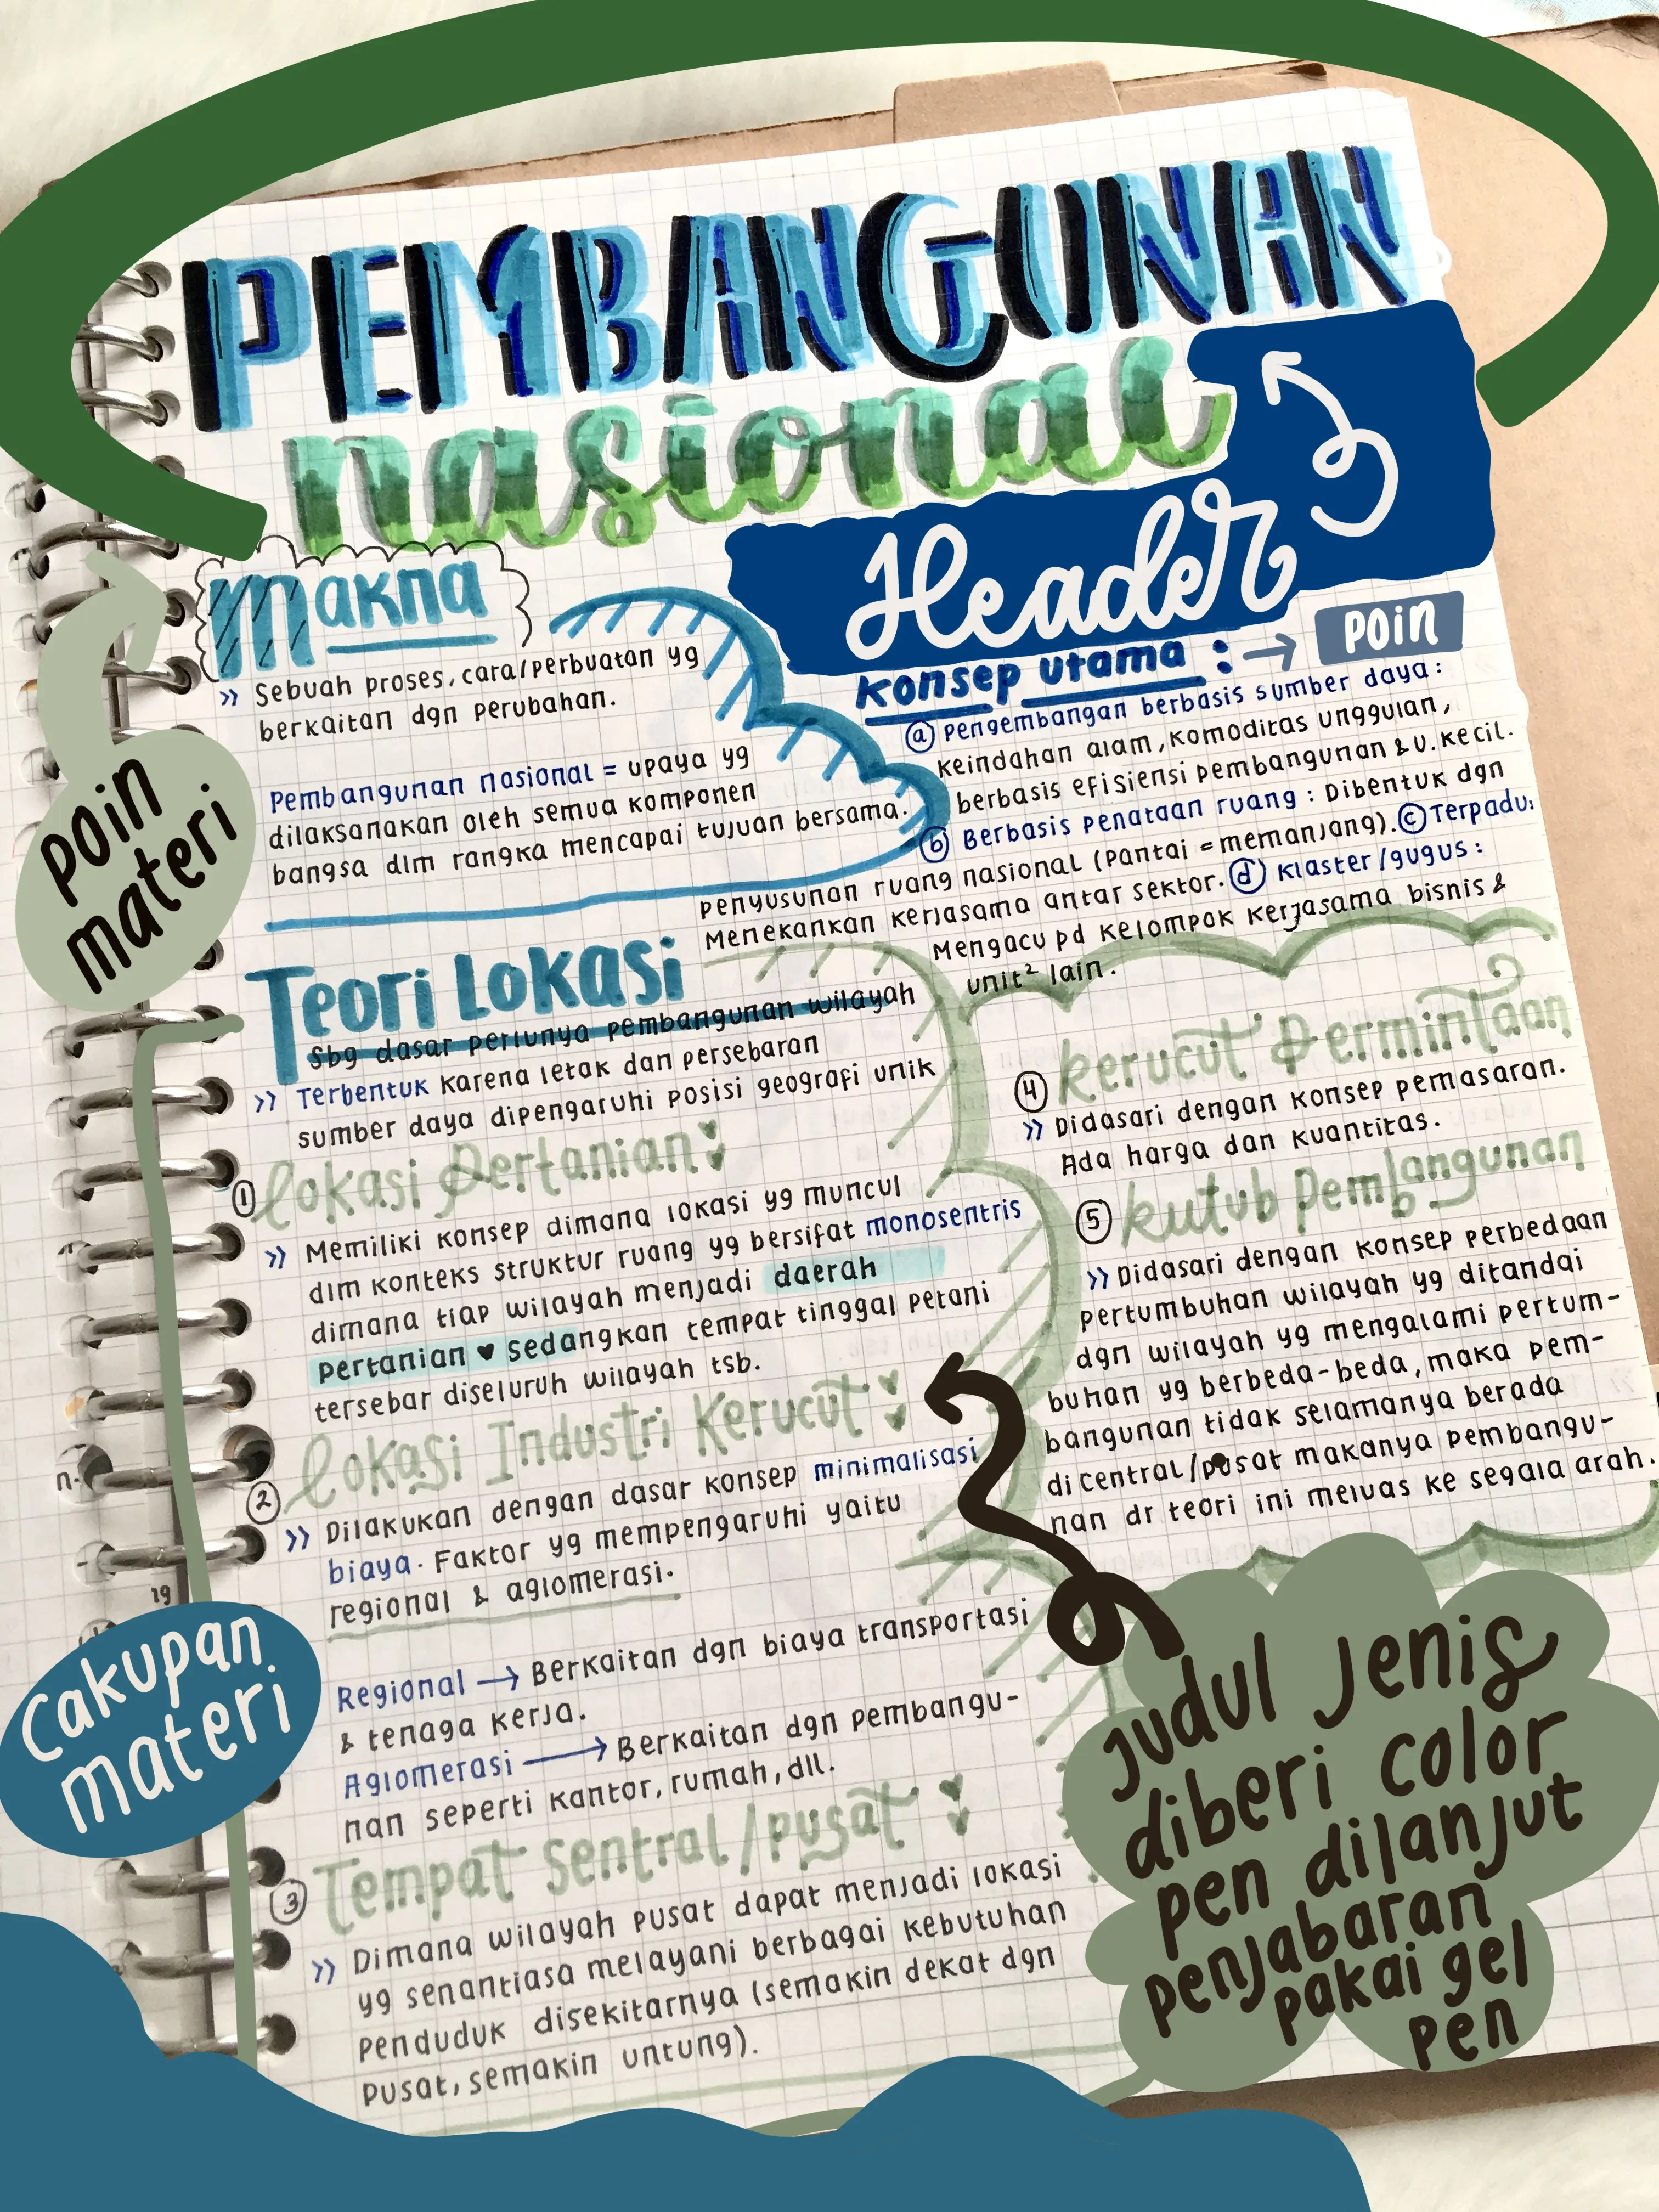 PEMBANGUNAN
nasional
Header
Makna
>> Sebuah proses, cara/perbuatan yg
berkaitan dgn perubahan.
Pembangunan nasional = upaya yg
dilaksanakan oleh semua komponen
bangsa dlm rangka mencapai tujuan bersama.
poin
materi
konsep utama : → poin
(a) pengembangan berbasis sumber daya :
Keindahan alam, komoditas unggulan,
berbasis efisiensi pembangunan & u. kecil.
(b) Berbasis penataan ruang : Dibentuk dgn
penyusunan ruang nasional (pantai = memanjang). (c) Terpadu:
Menekankan kerjasama antar sektor. (d) Klaster/gugus :
Mengacu pd kelompok kerjasama bisnis &
unit² lain.
Teori Lokasi
Sbg dasar perlunya pembangunan wilayah
>> Terbentuk karena letak dan persebaran
sumber daya dipengaruhi posisi geografi unik
① Lokasi Pertanian
>> Memiliki konsep dimana lokasi yg muncul
dlm konteks struktur ruang yg bersifat monosentris
dimana tiap wilayah menjadi daerah
pertanian ♥ sedangkan tempat tinggal petani
tersebar diseluruh wilayah tsb.
② Lokasi Industri Kerucut
>> Dilakukan dengan dasar konsep minimalisasi
biaya. Faktor yg mempengaruhi yaitu
regional & aglomerasi.
Regional → Berkaitan dgn biaya transportasi
& tenaga kerja.
Aglomerasi → Berkaitan dgn pembangu-
nan seperti kantor, rumah, dll.
③ Tempat Sentral/pusat
>> Dimana wilayah pusat dapat menjadi lokasi
yg senantiasa melayani berbagai kebutuhan
penduduk disekitarnya (semakin dekat dgn
pusat, semakin untung).
④ kerucut Permintaan
>> Didasari dengan konsep pemasaran.
Ada harga dan kuantitas.
⑤ kutub pembangunan
>> Didasari dengan konsep perbedaan
pertumbuhan wilayah yg ditandai
dgn wilayah yg mengalami pertum-
buhan yg berbeda-beda, maka pem-
bangunan tidak selamanya berada
di central/pusat makanya pembangu-
nan dr teori ini meluas ke segala arah.
n-
19
Cakupan
materi
judul jenis
diberi color
pen dilanjut
penjabaran
pakai gel
pen